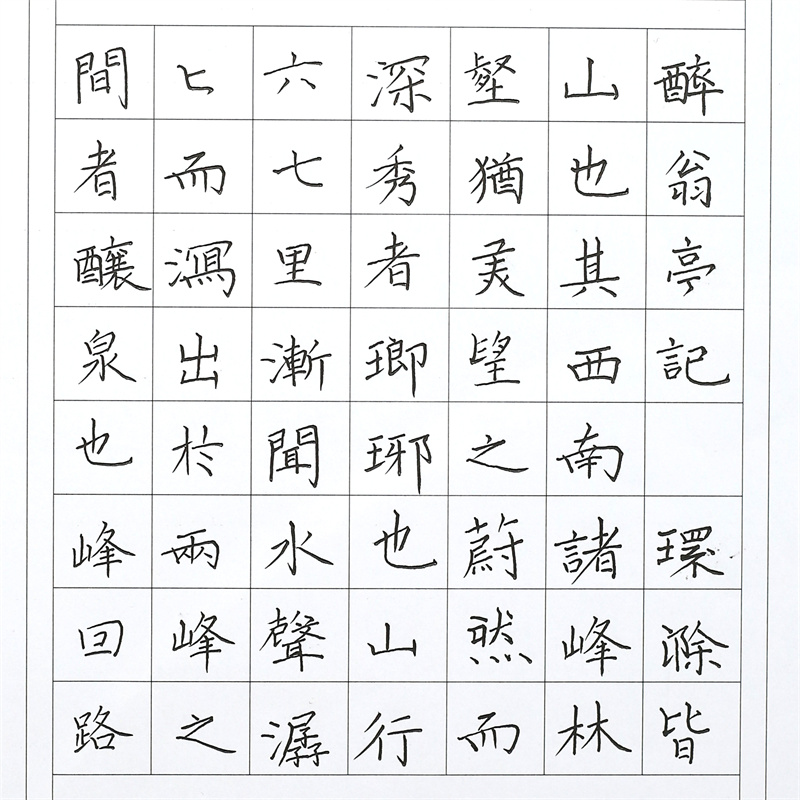 醉翁亭記 環滁皆
山也其西南諸峰林
壑猶美望之蔚然而
深秀者瑯琊也山行
六七里漸聞水聲潺
〻而瀉出於兩峰之
間者釀泉也峰回路